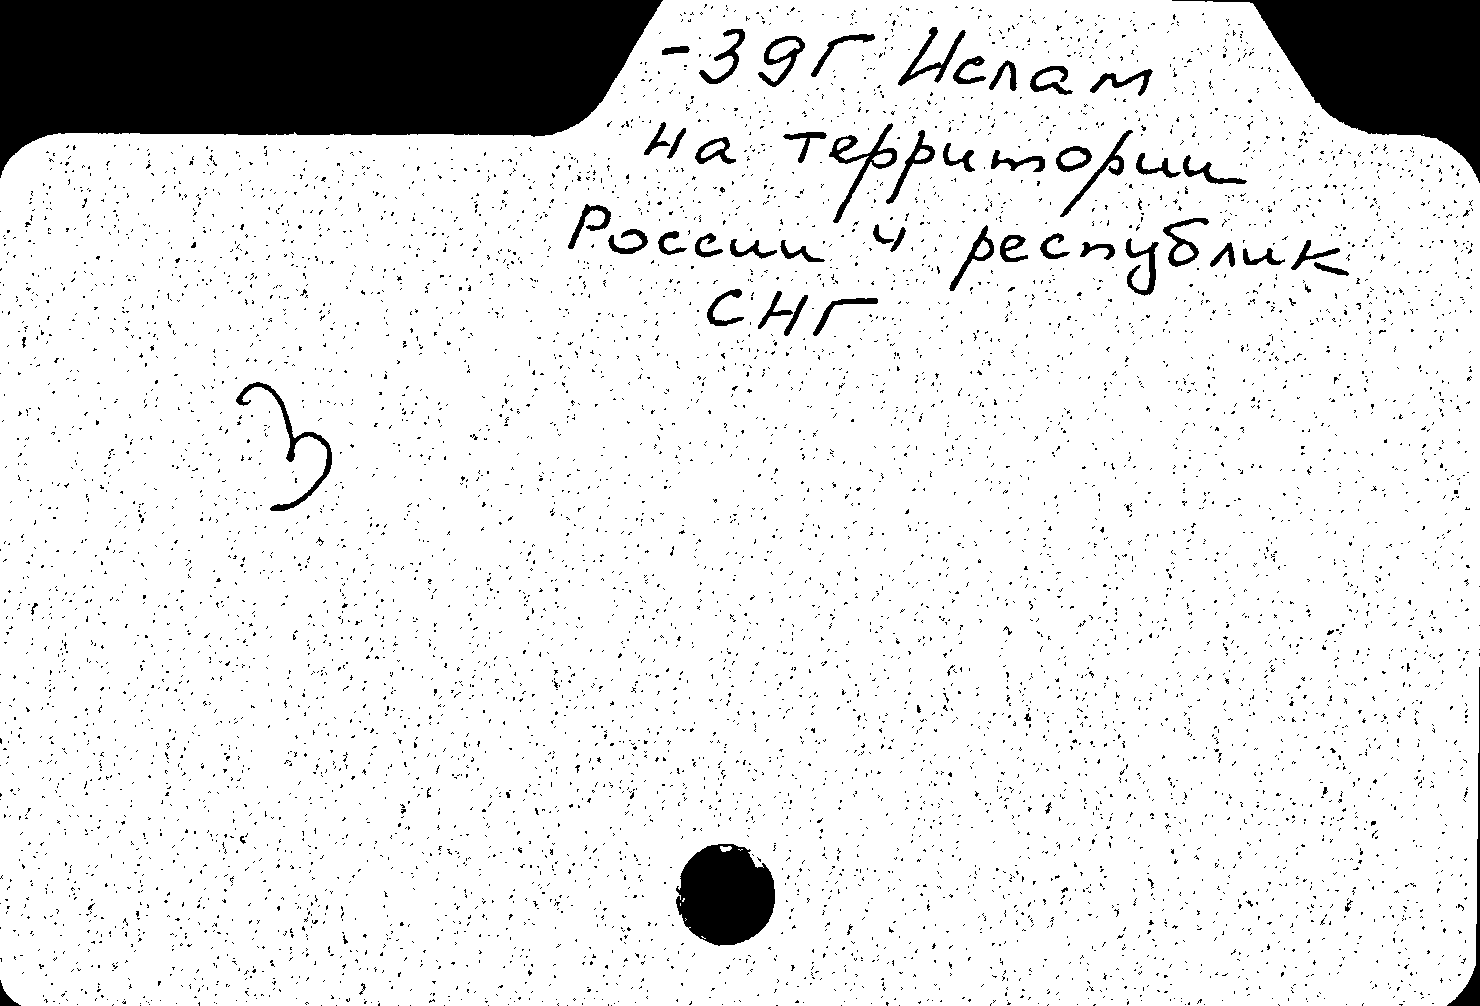 -39Г Ислам
на территории
России и республик
СНГ
3